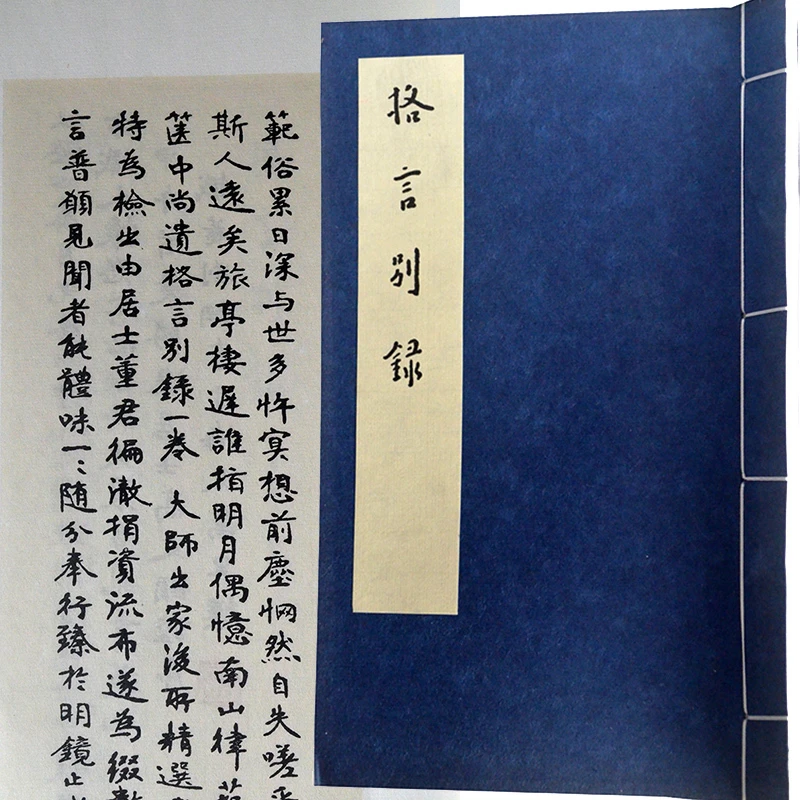 格言别錄
範俗累日深与世多忤冥想前塵惘然自失嗟
斯人遠矣旅亭棲遲誰指明月偶憶南山律
篋中尚遺格言别錄一卷 大師出家後所精選
特為檢出由居士董君徧澂捐資流布遂為綴
言普願見聞者能體味一一随分奉行臻於明鏡止